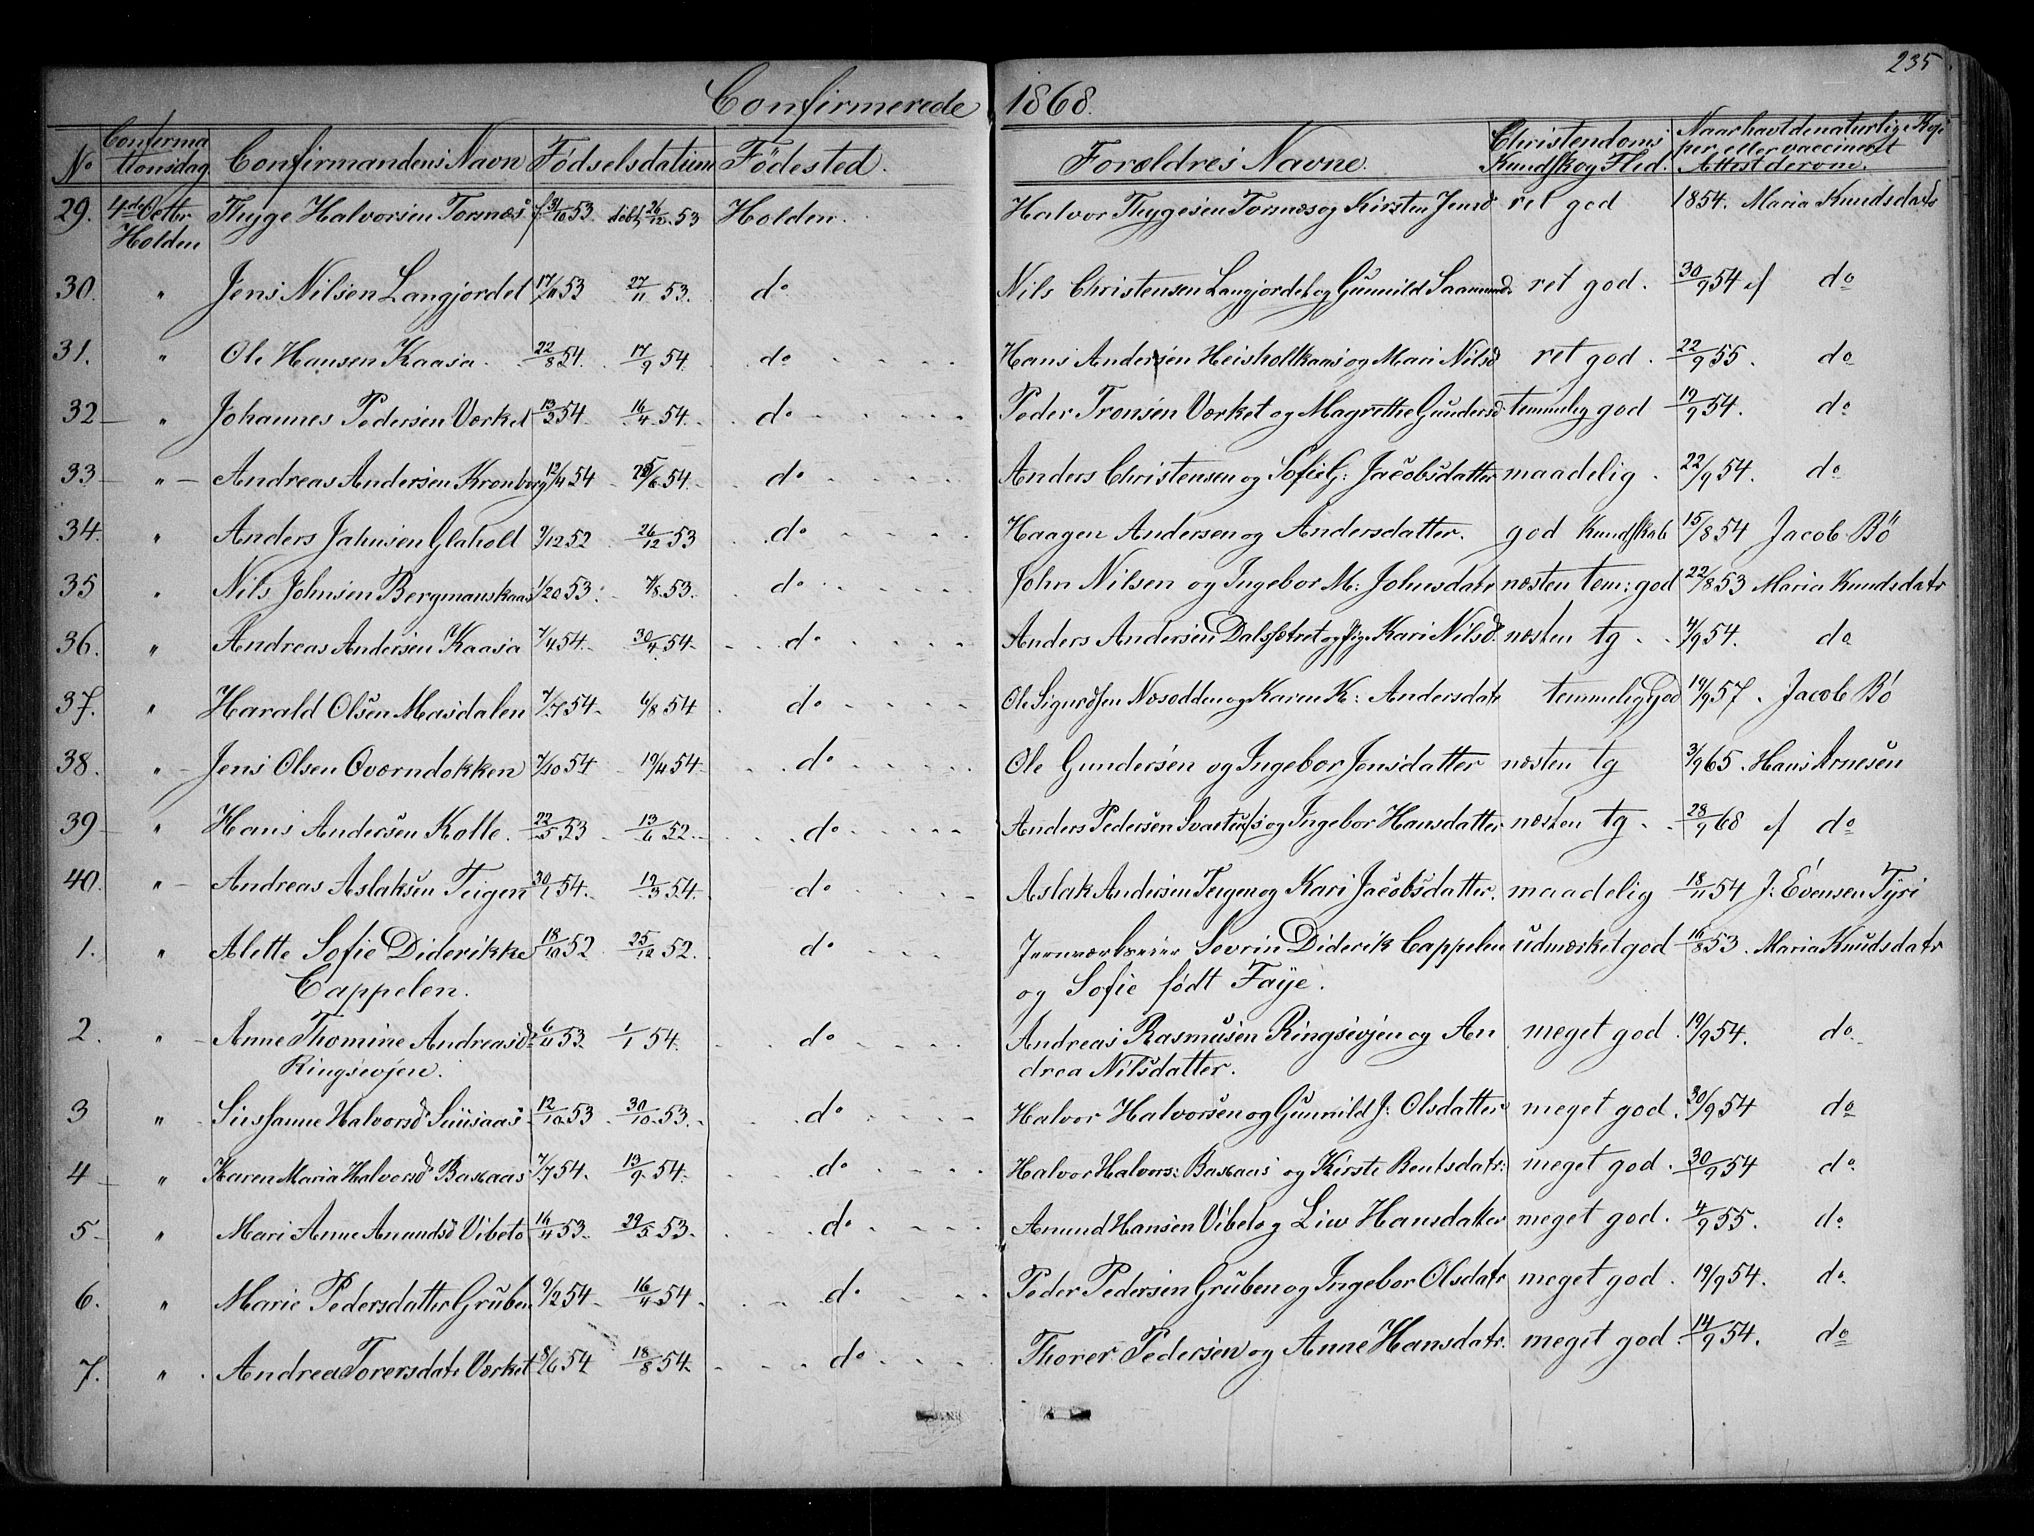 235
Confirmerede 1868.
No Confirmationsdag Confirmandens Navn Fødselsdatum Fødested. Forældres Navne. Christendoms Kundsk. og Flid. Naar havt de naturlige Kopper eller vaccineret Attest derom.
29. 4de Octbr Holden Thyge Halvorsen Tornæs f 31/10 53. døbt 26/12 53 Holden. Halvor Thygesen Tornæs og Kirsten Jensd ret god 1854. Maria Knudsdatr
30. " Jens Nilsen Langjordet 17/11 53 27/11 53. do Nils Christensen Langjordet og Gunnild Saamundsd ret god. 30/9 54 do
31. " Ole Hansen Kaasa. 22/8 54. 17/9 54. do Hans Andersen Heisholtkaas og Mari Nilsd ret god. 22/9 55. do
32 " Johannes Pedersen Værket 13/3 54. 16/4 54. do Peder Tronsen Værket og Magrethe Gundersd temmelig god 19/9 54. do
33 " Andreas Andersen Kronborg 12/4 54 25/6 54. do Anders Christensen og Sofie G: Jacobsdatter maadelig. 22/9 54. do
34. " Anders Jahnsen Glaholt 9/12 52 26/12 53 do Haagen Andersen og Andersdatter. god Kundskab 15/8 54 Jacob Bö
35 " Nils Johnsen Bergmanskaas 1/20 53. 7/8 53. do John Nilsen og Ingebor M: Johnsdatr næsten tem: god 22/8 53 Maria Knudsdatr
36. " Andreas Andersen Kaasa 7/4 54. 30/4 54. do Anders Andersen Dalssætret og Pige Kari Nilsd. næsten tg. 4/9 54. do
37. " Harald Olsen Masdalen 7/7 54. 6/8 54 do Ole Sigurdsen Næsodden og Karen K: Andersdatr temmelig god 19/9 57. Jacob Bö
38. " Jens Olsen Qværndokken 7/10 54 19/4 54. do Ole Gundersen og Ingebor Jensdatter næsten tg 3/9 65. Hans Arnesen
39 " Hans Andersen Kolte. 22/5 53 13/6 52. do Anders Pedersen og Ingebor Hansdatter næsten tg. 28/9 68 do
40. " Andreas Aslaksen Teigen 30/1 54. 19/3 54. do Aslak Andersen Teigen og Kari Jacobsdatter. maadelig 18/11 54 J: Evensen Tyri
1. " Alette Sofie Diderikke Cappelen. 18/10 52 25/12 52. do Jernværkseier Sevrin Diderik Cappelen og Sofie født Faye. udmærket god 16/8 53. Maria Knudsdatr
2. " Anne Thomine Andreasd Ringsevjen. 6/11 53. 1/1 54. do Andreas Rasmusen Ringsevjen og Andrea Nilsdatter. meget god. 19/9 54. do
3 " Sussanne Halvorsd Suusaas 12/10 53 30/10 53. do Halvor Halvorsen og Gunnild J: Olsdatter meget god. 30/9 54 do
4 " Karen Maria Halvorsd Baskaas 7/7 54. 13/9 54. do Halvor Halvors: Baskaas og Kirste Bentsdatr: meget god. 30/9 54 do
5 " Mari Anne Amundsd Vibeto 16/4 53. 29/5 53. do Amund Hansen Vibeto og Liv Hansdatter meget god. 4/9 55. do
6. " Marie Pedersdatter Gruben 9/2 54. 16/4 54. do Peder Pedersen Gruben og Ingebor Olsdatr meget god. 19/9 54. do
7. " Andrea Torersdatr Værket 8/6 54 18/8 54. do Thorer Pedersen og Anne Hansdatr. meget god. 14/9 54. do